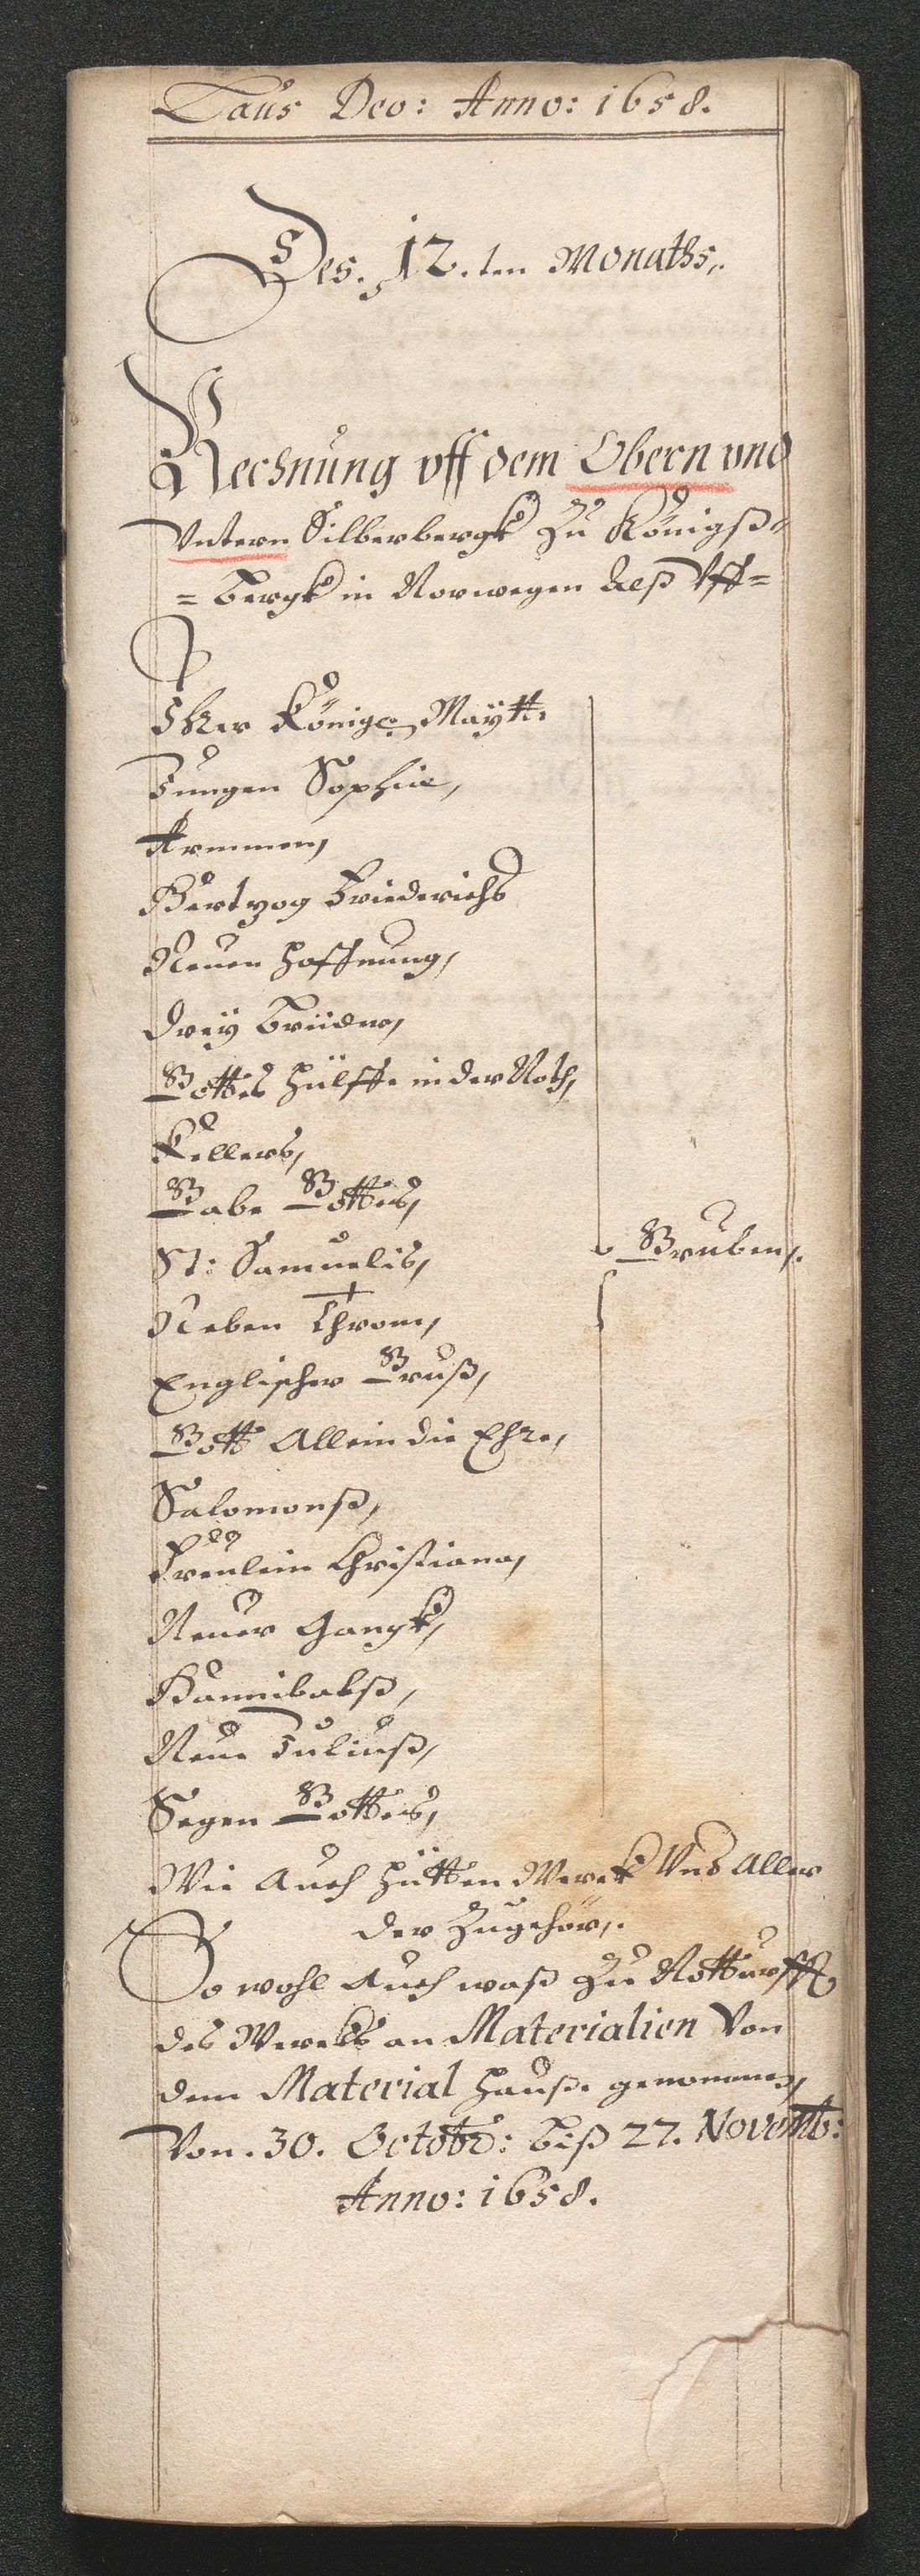 Laus Deo: Anno: 1658.
Des. 12.ten Monaths,.
Rechnung vff dem Obern vnd
Vntern Silberbergk Zu Königß-
=Bergk in Norwegen Alß Vff=
Ihr Königs Maÿtt:
Jungen Sophie,
Armmen,
Hertzog Friederichs
Neuen Hoffnung,
Dreÿ Brüder,
Gottes Hülffe in der Noth,
Kellers,
Gabe Gottes,
St: Samuelis,
Neben Throm,
Englischer Gruß,
Gott Allein die Ehre,
Salomonß,
Freulein Christiana,
Neuer Gangk,
Hannibalß,
Neue Juliuß,
Segen Gottes,
Gruben,.
Wie Auch Hütten Werck Vnd Aller
der Zugehör,.
So wohl Auch waß Zu Notturfft
des Wercks an Materialien Von
dem Material Hause genommen,
Von. 30. Octobr: biß 27. Novemb:
Anno: 1658.